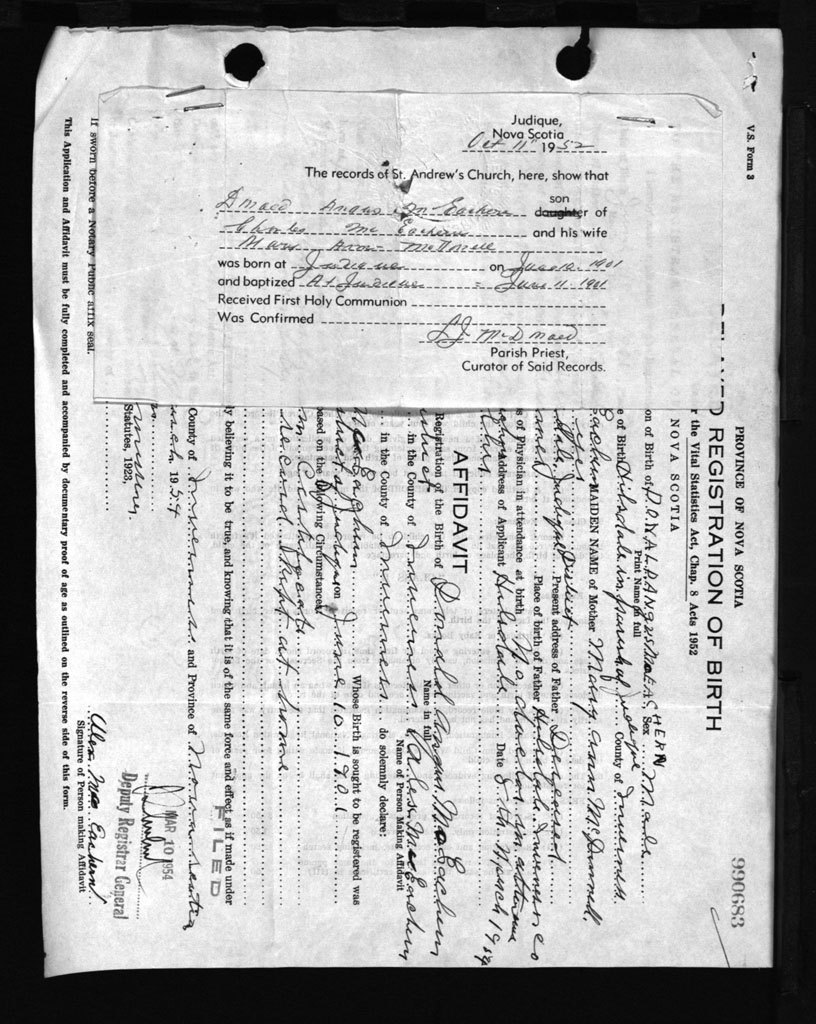 Judique,
Nova Scotia
Oct 11 1952
The records of St. Andrew's Church, here, show that
son
Angus daughter of
Charles Mc Eachern and his wife
Mary Ann
was born at Judique on June 10. 1901
and baptized At Judique - June 11. 1901
Received First Holy Communion
Was Confirmed
Parish Priest,
Curator of Said Records.
V.S. Form 3
990683
PROVINCE OF NOVA SCOTIA
REGISTRATION OF BIRTH
the Vital Statistics Act, Chap. 8 Acts 1952
NOVA SCOTIA
on of Birth of DONALD ANGUS MacEACHERN Sex Male
Print Name in full
e of Birth Hillsdale in parish of Judique County of Inverness
Eachern MAIDEN NAME of Mother Mary Ann McDonnell
Judique District Present address of Father Deceased
Place of birth of Father Hillsdale Inverness Co
s of Physician in attendance at birth No doctor in attendance
Address of Applicant Hillsdale Date 8th March 1954
AFFIDAVIT
Registration of the Birth of Donald Angus MacEachern
Name in full
in the County of Inverness I Alex MacEachern
Name of Person Making Affidavit
in the County of Inverness do solemnly declare:
MacEachern Whose Birth is sought to be registered was
Judique on June 10 1901
based on the following Circumstances
record kept at home
ly believing it to be true, and knowing that it is of the same force and effect as if made under
FILED
County of Inverness and Province of Nova Scotia
March 1954
MAR 10 1954
Deputy Registrar General
Statutes, 1923,
Alex MacEachern
Signature of Person making Affidavit
If sworn before a Notary Public affix seal.
This Application and Affidavit must be fully completed and accompanied by documentary proof of age as outlined on the reverse side of this form.